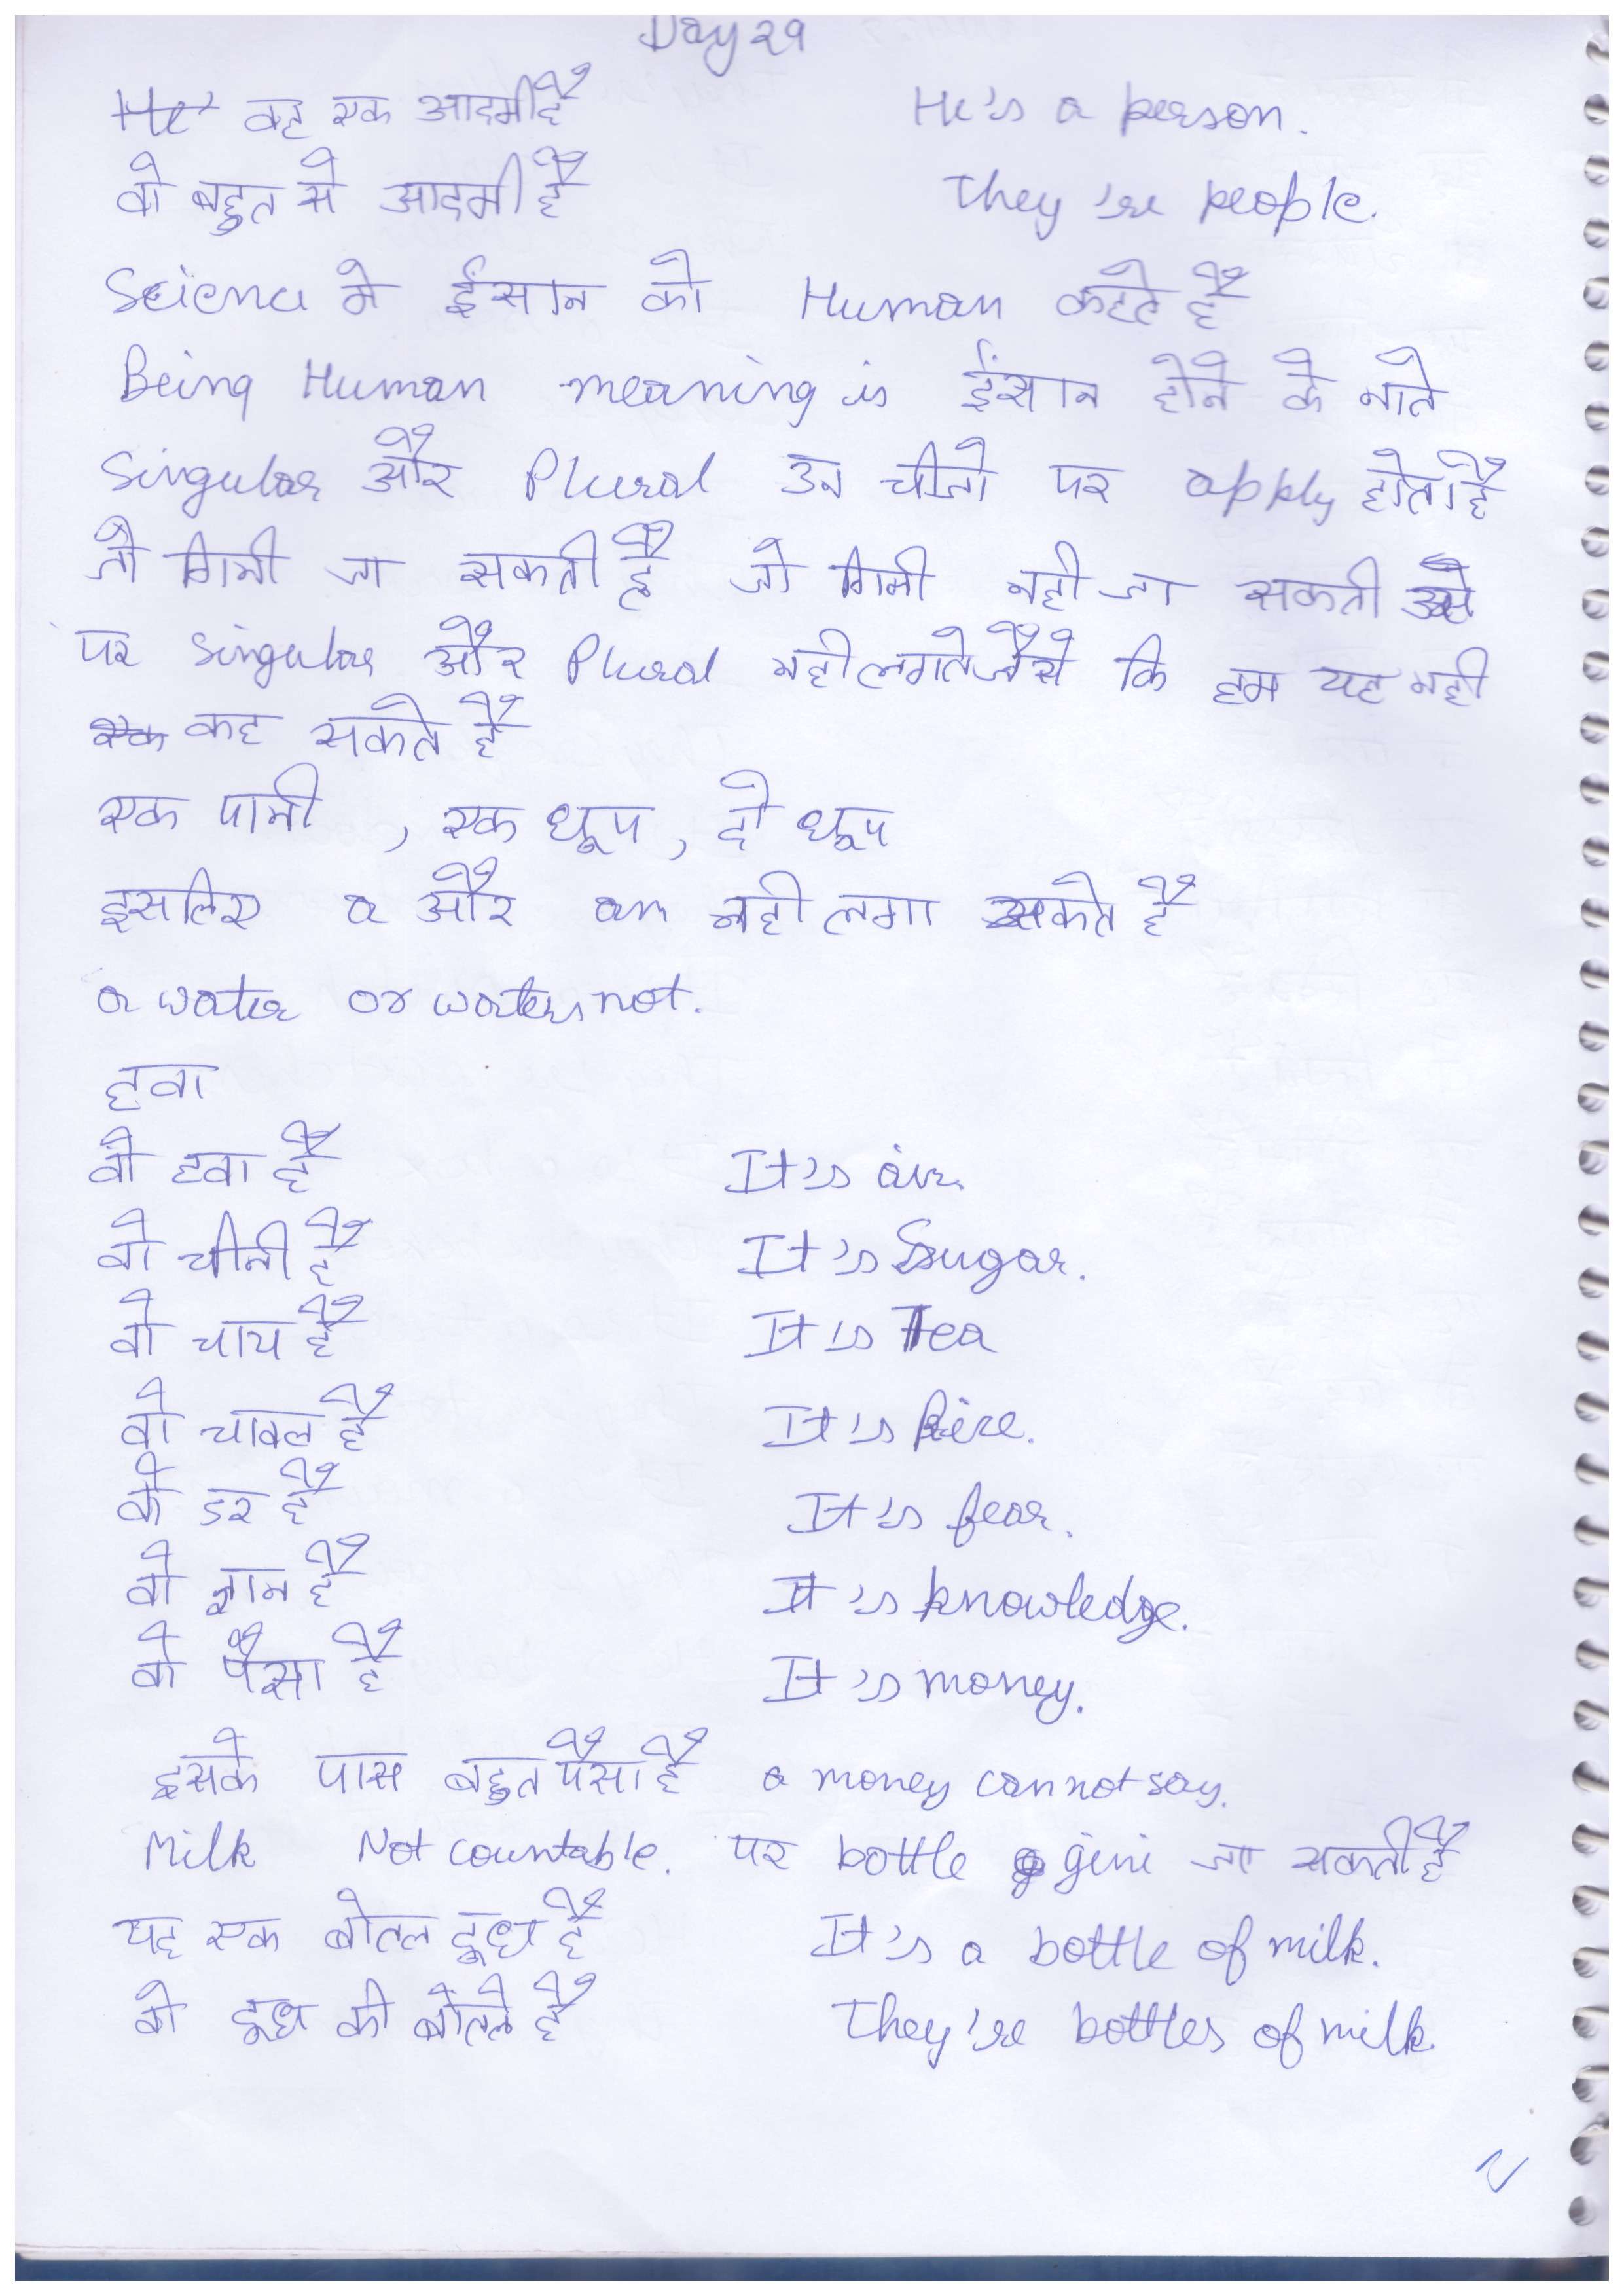 Day 29
वह एक आदमी है He's a person.
वो बहुत से आदमी है They're people.
Science मे ईंसान को Human कहते है
Being Human meaning is ईंसान होने के नाते
Singular और Plural उन चीजो पर apply होता है
जो गिनी जा सकती है जो गिनी नही जा सकती उसे
पर singular और Plural नही लगते जैसे कि हम यह नही
कह सकते है
एक पानी , एक धूप , दो धूप
इसलिए a और an नही लगा सकते है
a water or waters not.
हवा
वो हवा है It's air.
वो चीनी है It's Sugar.
वो चाय है It's Tea
वो चावल है It's Rice.
वो डर है It's fear.
वो ज्ञान है It's knowledge.
वो पैसा है It's money.
इसके पास बहुत पैसा है a money cannot say.
Milk Not countable. पर bottle gini जा सकती है
यह एक बोतल दूध है It's a bottle of milk.
वो दूध की बोतले है They're bottles of milk.